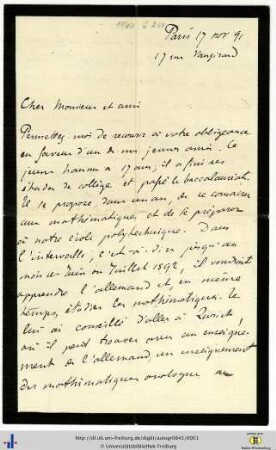 Paris 17 nov 91
17 rue Vaugirard
Cher Monsieur et ami
Permettez moi de recourir à votre obligeance
en faveur d'un de mes jeunes amis. Ce
jeune homme a 17 ans, il a fini ses
études de collège et passé le baccalauréat.
Il se propose, dans un an, de se consacrer
aux mathématiques et de se préparer
à notre école polytechnique. Dans
l'intervalle, c'est-à-dire jusqu'au
mois de Juin ou Juillet 1892, il voudrait
apprendre l'allemand et, en même
temps, étudier les mathématiques. Je
lui ai conseillé d'aller à Zurich,
où il peut trouver avec un enseigne-
ment de l'allemand, un enseignement
des mathématiques analogue au
http://dl.ub.uni-freiburg.de/diglit/autogr0845/0001
© Universitätsbibliothek Freiburg